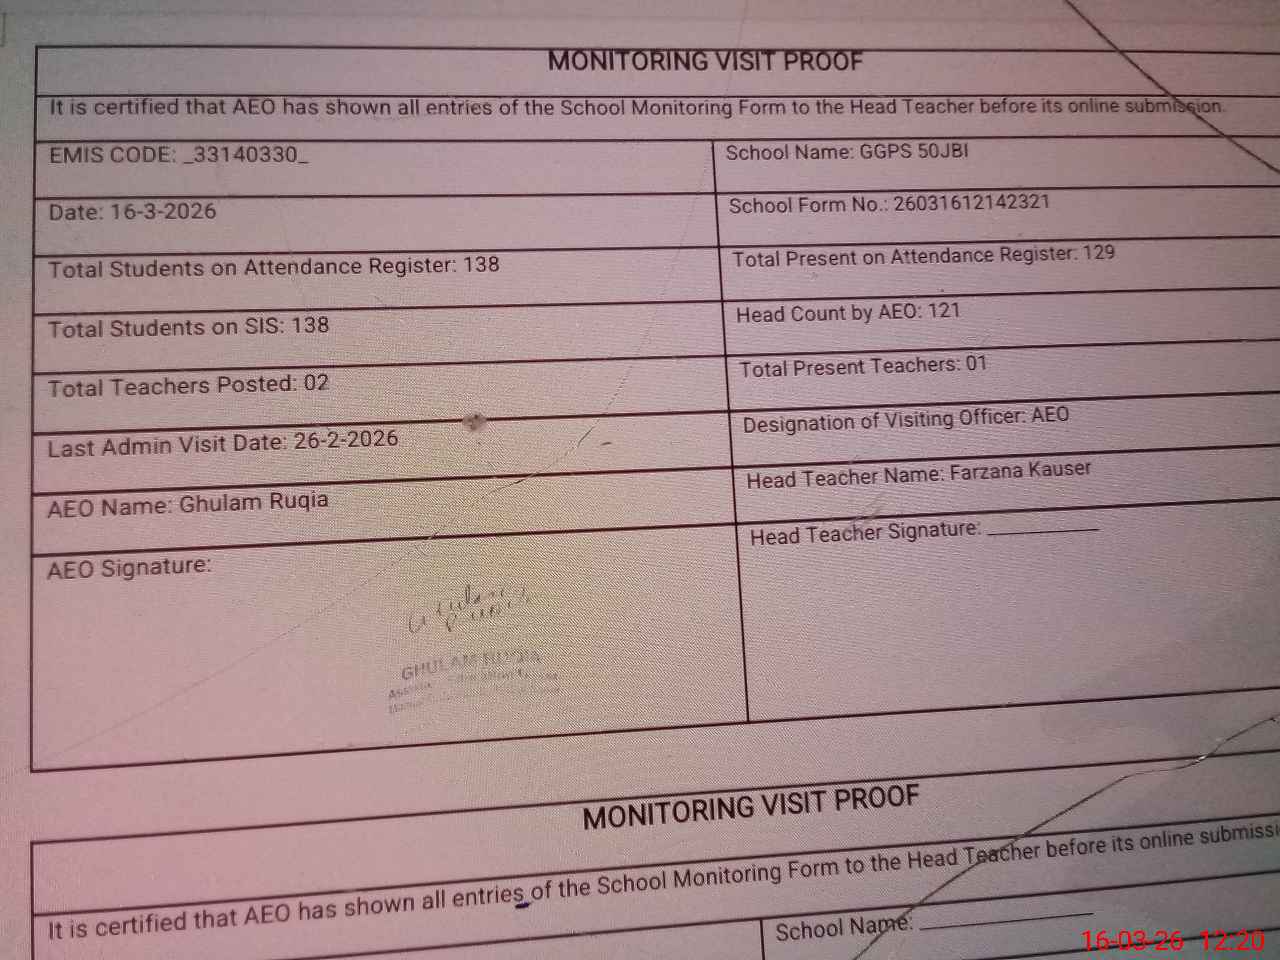 MONITORING VISIT PROOF
It is certified that AEO has shown all entries of the School Monitoring Form to the Head Teacher before its online submission.
EMIS CODE: _33140330_
School Name: GGPS 50JBI
Date: 16-3-2026
School Form No.: 26031612142321
Total Students on Attendance Register: 138
Total Present on Attendance Register: 129
Total Students on SIS: 138
Head Count by AEO: 121
Total Teachers Posted: 02
Total Present Teachers: 01
Last Admin Visit Date: 26-2-2026
Designation of Visiting Officer: AEO
AEO Name: Ghulam Ruqia
Head Teacher Name: Farzana Kauser
AEO Signature:
Head Teacher Signature: __________
GHULAM RUQIA
MONITORING VISIT PROOF
It is certified that AEO has shown all entries of the School Monitoring Form to the Head Teacher before its online submissi
School Name: _______________
16-03-26 12:20